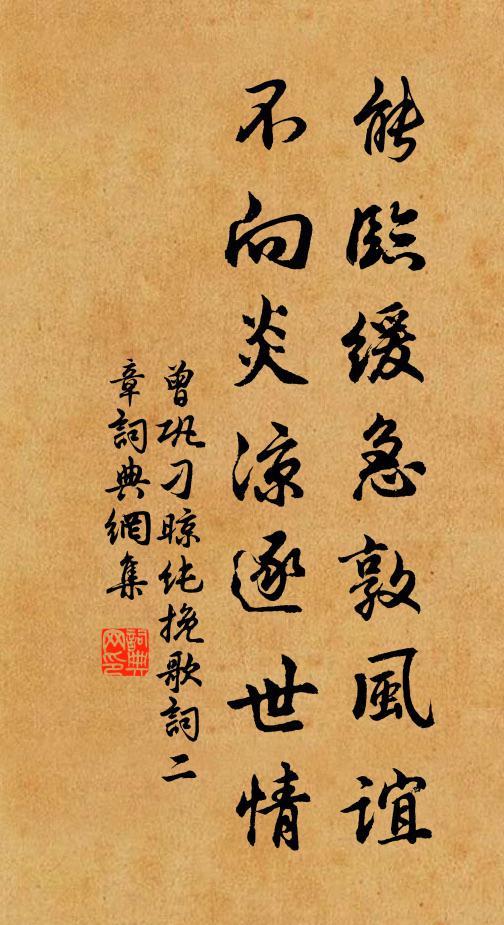 能臨緩急敦風誼
不向炎涼逐世情
曾巩刁晾纯挽歌詞二
章詞典網集
詞典
网印